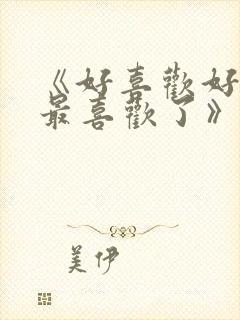 《好喜歡好
最喜歡了》
美伊